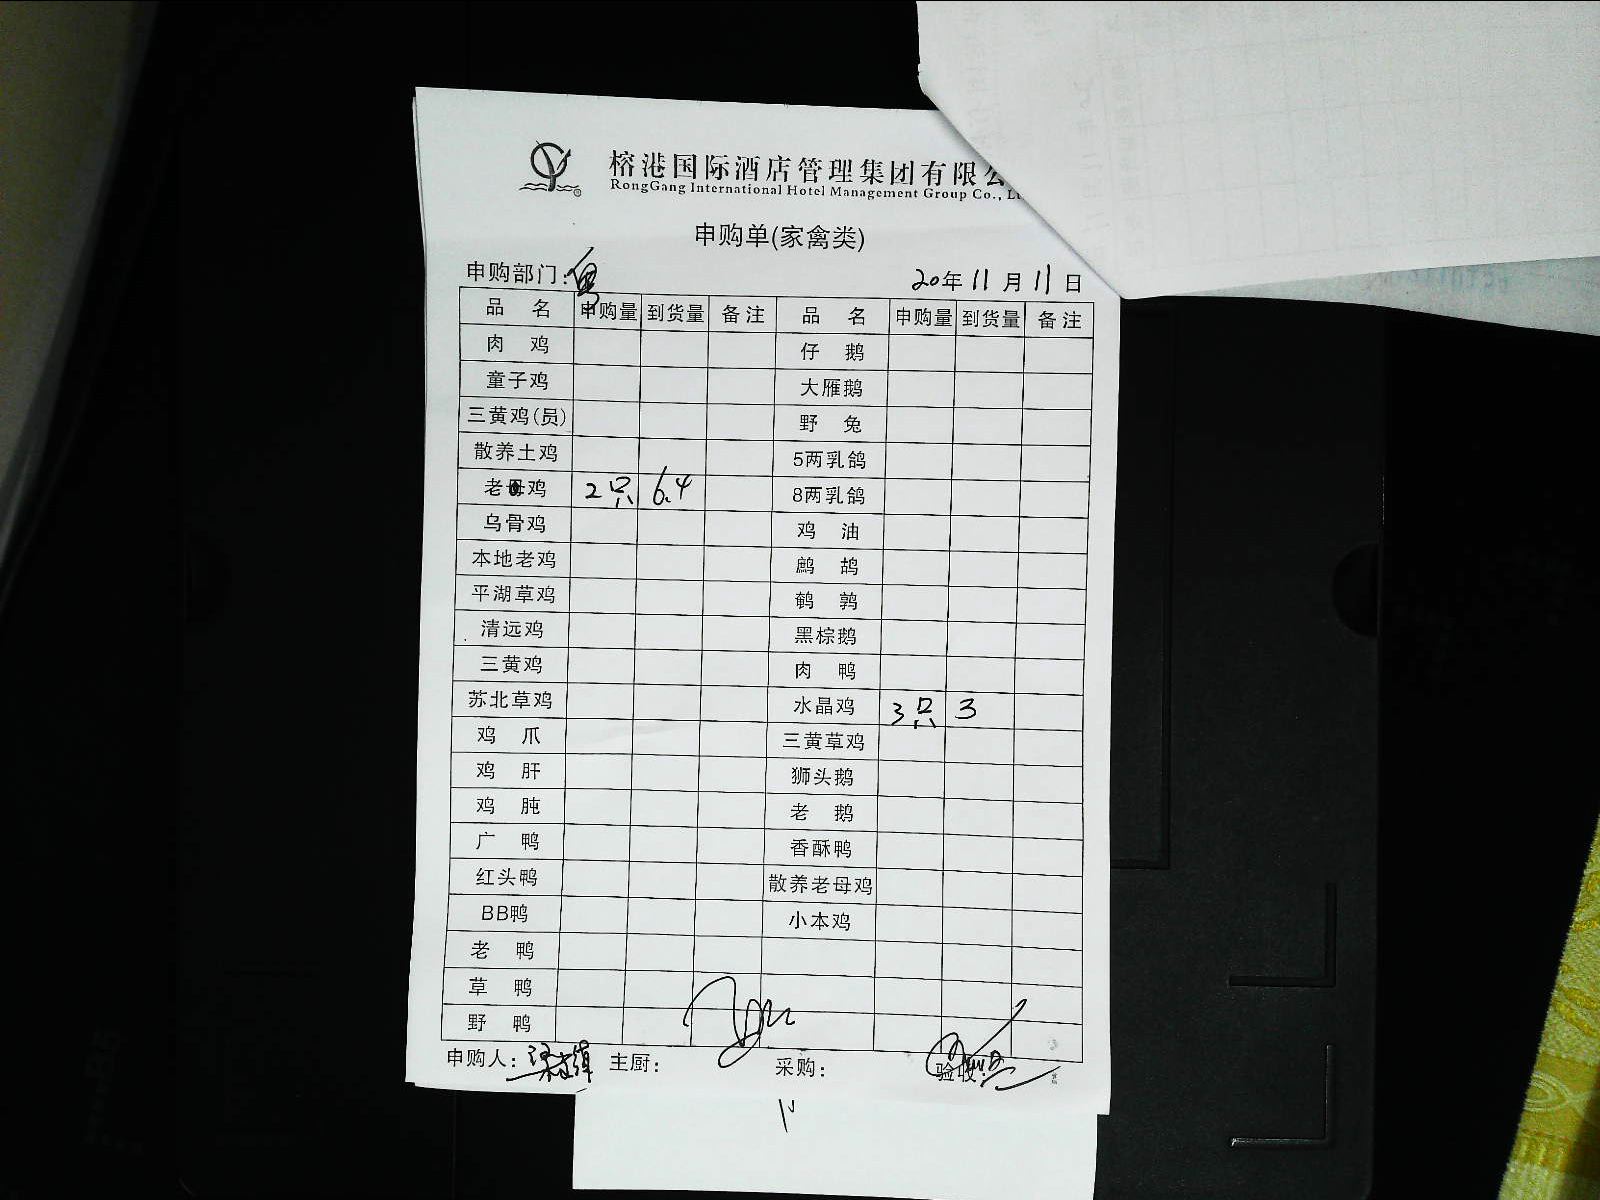 榕港国际酒店管理集团有限公
RongGang International Hotel Management Group Co., Lt
申购单(家禽类)
申购部门: 20年11月11日
品名 申购量 到货量 备注 品名 申购量 到货量 备注
肉鸡 仔鹅
童子鸡 大雁鹅
三黄鸡(员) 野兔
散养土鸡 5两乳鸽
老母鸡 2只 6.4 8两乳鸽
乌骨鸡 鸡油
本地老鸡 鹧鸪
平湖草鸡 鹌鹑
清远鸡 黑棕鹅
三黄鸡 肉鸭
苏北草鸡 水晶鸡 3只 3
鸡爪 三黄草鸡
鸡肝 狮头鹅
鸡肫 老鹅
广鸭 香酥鸭
红头鸭 散养老母鸡
BB鸭 小本鸡
老鸭
草鸭
野鸭
申购人: 主厨: 采购: 验收: